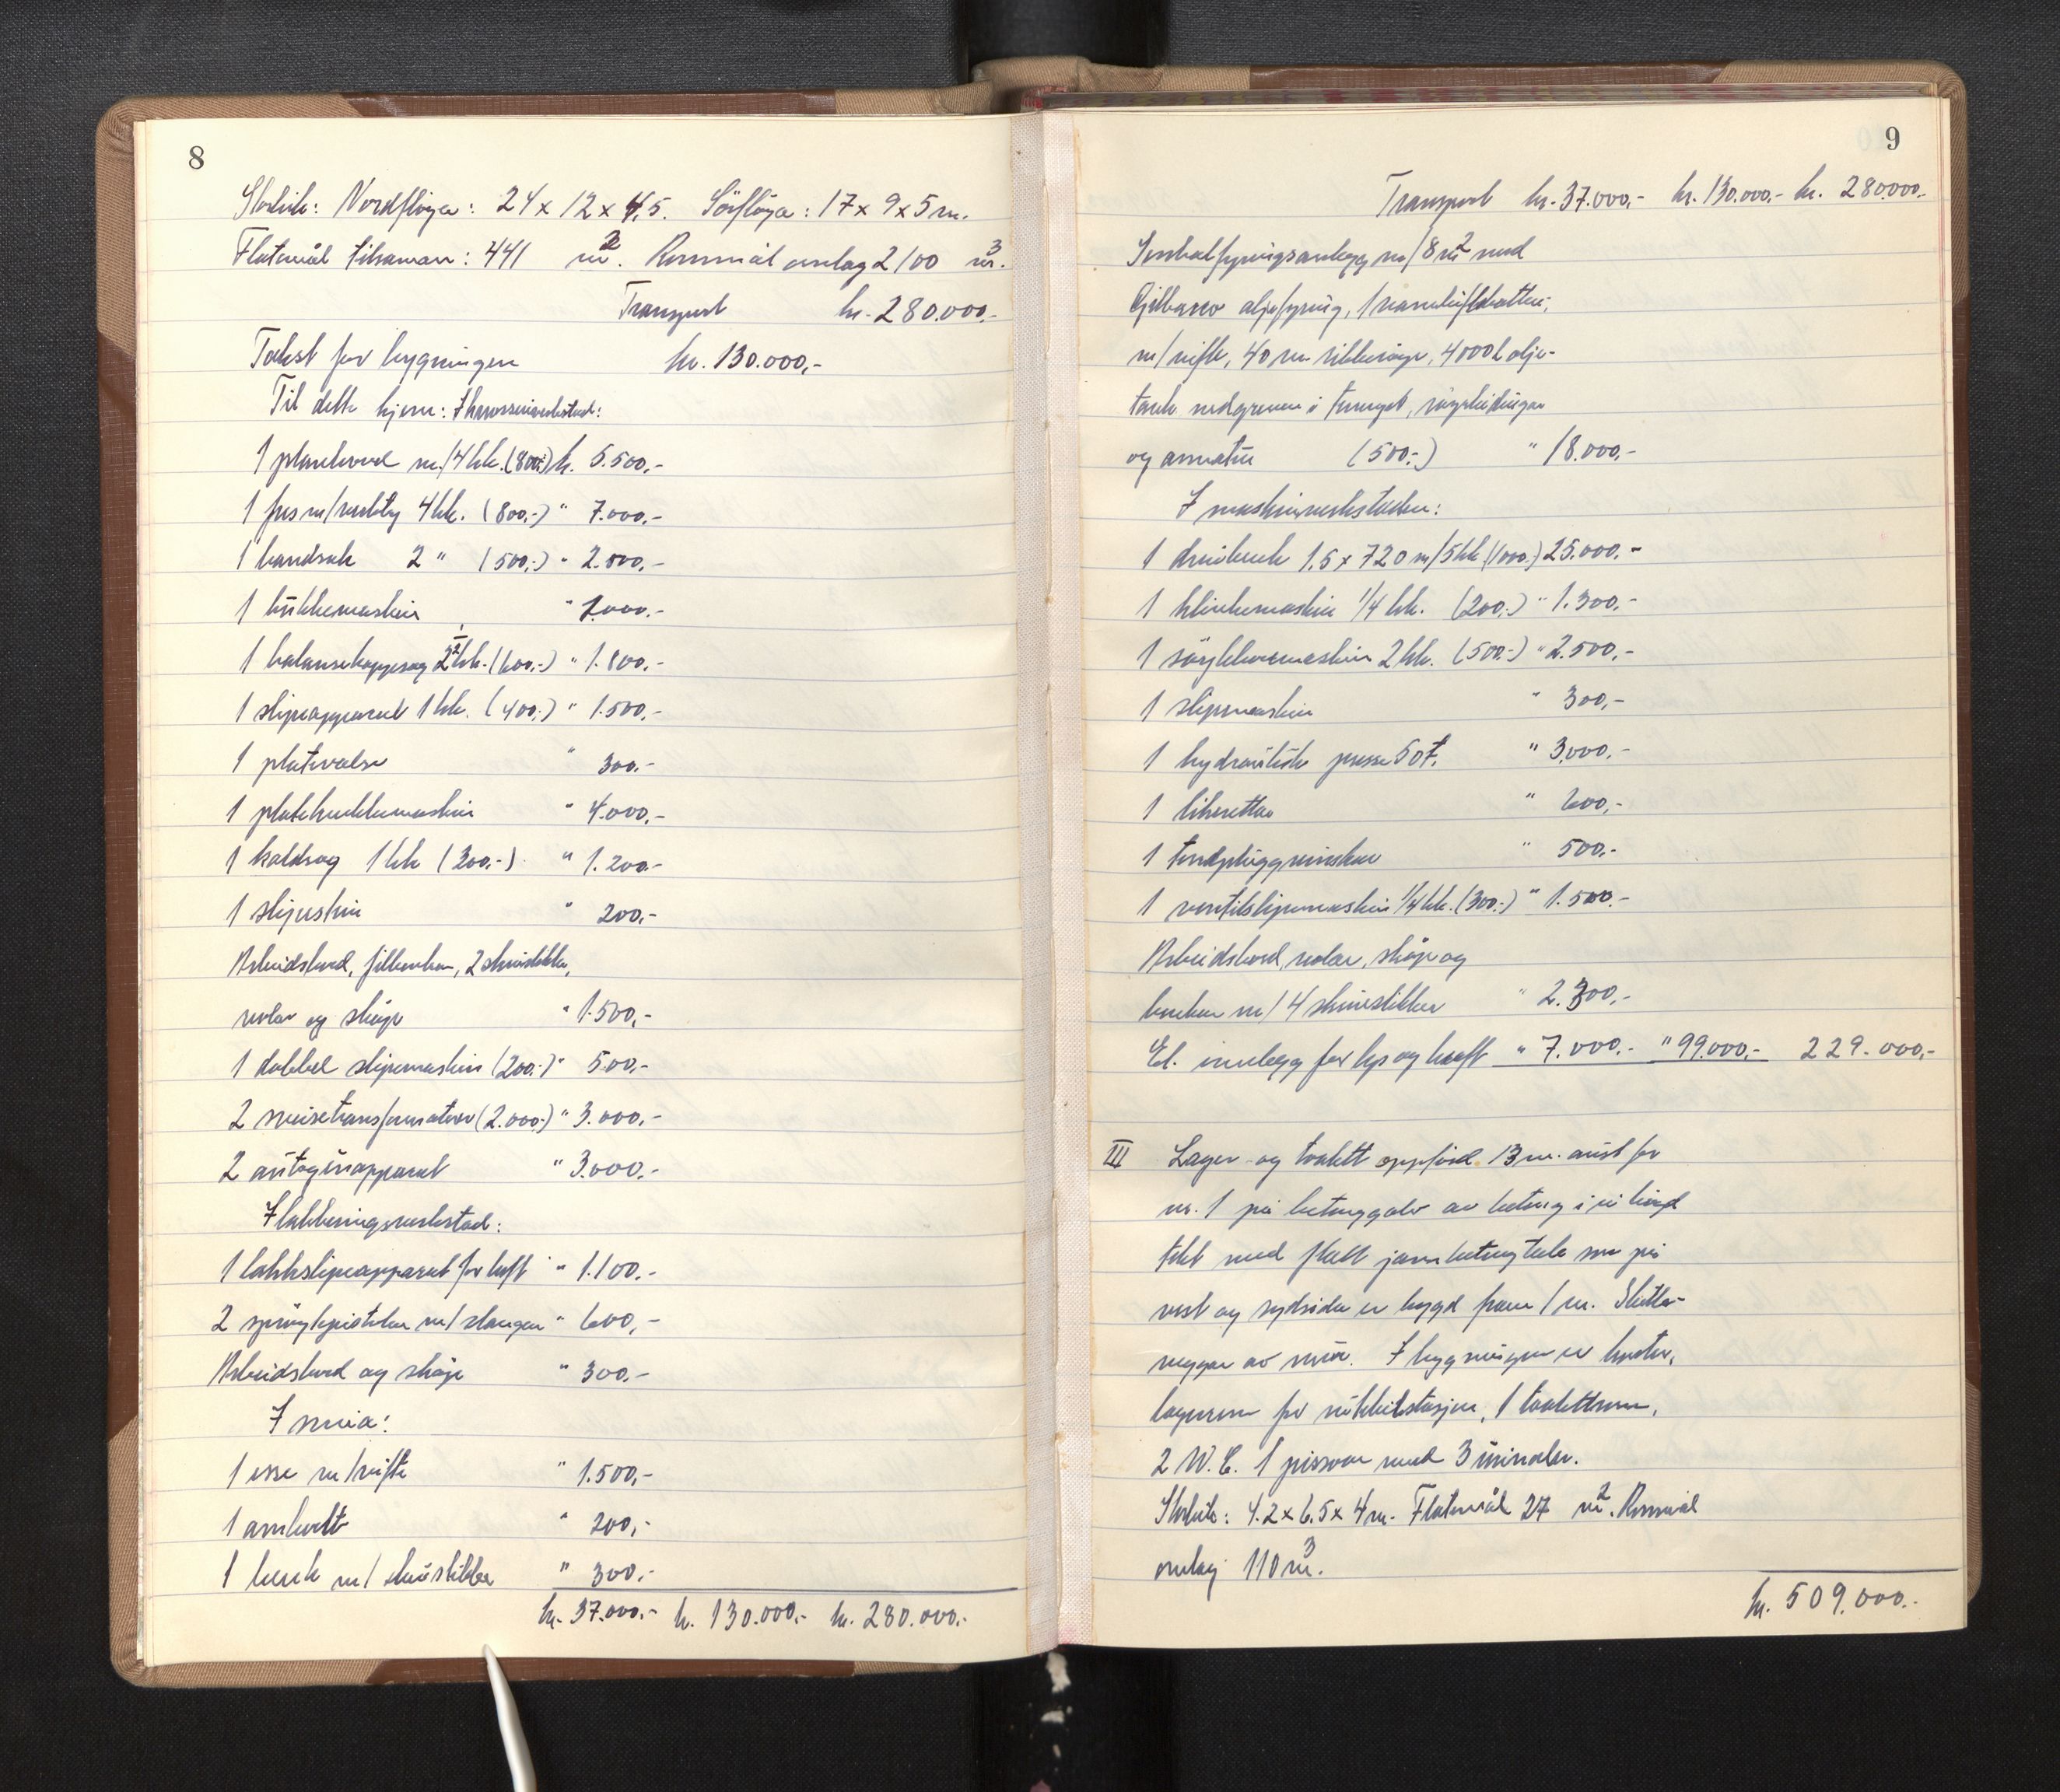 8
Storleik: Nordfløya: 24 x 12 x 4,5. Sörfløya: 17 x 9 x 5 m.
Flatemål tilsaman: 441 m². Rommål omlag 2100 m³.
Transport kr. 280.000,-
Takst for bygningen kr. 130.000,-
Til dette kjem: I karosseriverkstad:
1 plankovd m/4 hk. (800,-) kr. 5.500,-
1 fres m/verkty 4 hk. (800,-) " 7.000,-
1 bandsak 2 " (500,-) " 2.800,-
1 bukkemaskin " 1.000,-
1 balansekappsag 2½ hk. (600,-) " 1.800,-
1 slipeapparat 1 hk. (400,-) " 1.500,-
1 platevalse " 300,-
1 plateknekkemaskin " 4.000,-
1 kaldsag 1 hk (300,-) " 1.200,-
1 slipestein " 200,-
Arbeidsbord, filbenker, 2 skruestikker,
reolar og skåp " 1.500,-
1 dobbel slipemaskin (200,-) " 500,-
2 sveisetransformatorer (2.000,-) " 3.000,-
2 autogenapparat " 3.000,-
I lakkeringsverkstad:
1 lakkslipeapparat for luft " 1.100,-
2 sprøytepistolar m/slanger " 600,-
Arbeidsbord og skåp " 300,-
I smia:
1 esse m/vifte " 1.500,-
1 ambolt " 200,-
1 benk m/skruestikke " 300,-
kr. 37.000,- kr. 130.000,- kr. 280.000,-
9
Transport kr. 37.000,- kr. 130.000,- kr. 280.000,-
Sentralfyringsanlegg m/8 m² med
oljefyring, 1 varmluftsbatteri
m/vifte, 40 m ribberøyr, 4000 l olje-
tank nedgraven i tomret, røyrleidingar
og armatur (500,-) " 18.000,-
I maskinverkstaden:
1 dreiebenk 1.5 x 720 m/5 hk (1000,-) 25.000,-
1 klinkemaskin 1/4 hk. (200,-) " 1.300,-
1 søyleboremaskin 2 hk. (500,-) " 2.500,-
1 slipemaskin " 300,-
1 hydraulisk presse 50 t. " 3.000,-
1 likerettar " 600,-
1 tendpluggrenskar " 500,-
1 ventilslipemaskin 1/4 hk. (300,-) " 1.500,-
Arbeidsbord, reolar, skåp og
benker m/4 skruestikker " 2.300,-
El. innlegg for lys og kraft " 7.000,- " 99.000,- 229.000,-
III Lager og toalett oppförd 13 m. aust for
nr. 1 på betonggolv av betong i ei högd
tekt med flatt jarnbetongtak som på
vest og sydsida er bygd fram 1 m. Skille-
veggar av mur. I bygningen er
lagerrom for stasjon, 1 toalettrom,
2 W.C. 1 pissoar med 3 urinaler.
Storleik: 4.2 x 6.5 x 4 m. Flatemål 27 m². Rommål
omlag 110 m³.
kr. 509.000,-